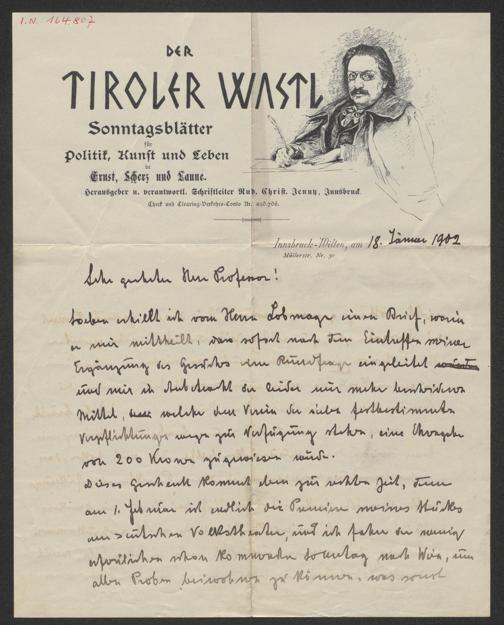 I.N. 164.807
DER
TIROLER WASTL
Sonntagsblätter
für
Politik, Kunst und Leben
in
Ernst, Scherz und Laune.
Herausgeber u. verantwortl. Schriftleiter Rud. Christ. Jenny, Innsbruck.
Check und Clearing-Verkehrs-Conto Nr.
Innsbruck-Wilten, am 18. Jänner 1902
Müllerstr. Nr.
Sehr geehrter Herr Professor!
Soeben erhielt ich vom Herrn Lobmayr einen Brief, worin
er mir mittheilt, dass sofort nach dem Eintreffen meiner
Ergänzung des Gesuches eine Rundfrage eingeleitet
und mir in Anbetracht der leider nur mehr bescheidenen
Mittel, welche dem Verein der vielen festbestimmten
Verpflichtungen wegen zur Verfügung stehen, eine Ehrengabe
von 200 Kronen zugewiesen wurde.
Dieses Geschenk kommt eben zur rechten Zeit, denn
am 1. Februar ist endlich die Premiere meines Stückes
am Deutschen Volkstheater, und ich fahre der wenig
erfreulichen schon kommenden Sonntag nach Wien, um
allen Proben beiwohnen zu können, was sonst